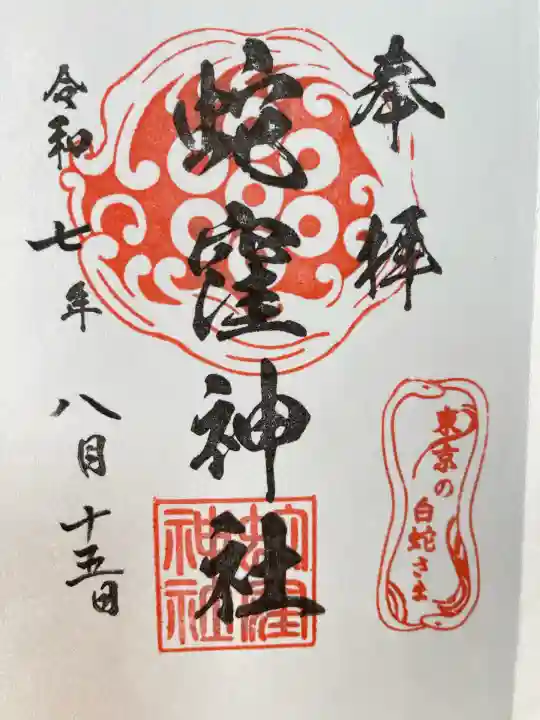 奉拝
東京の
白蛇さま
蛇窪神社
蛇窪
神社
令和七年八月十五日